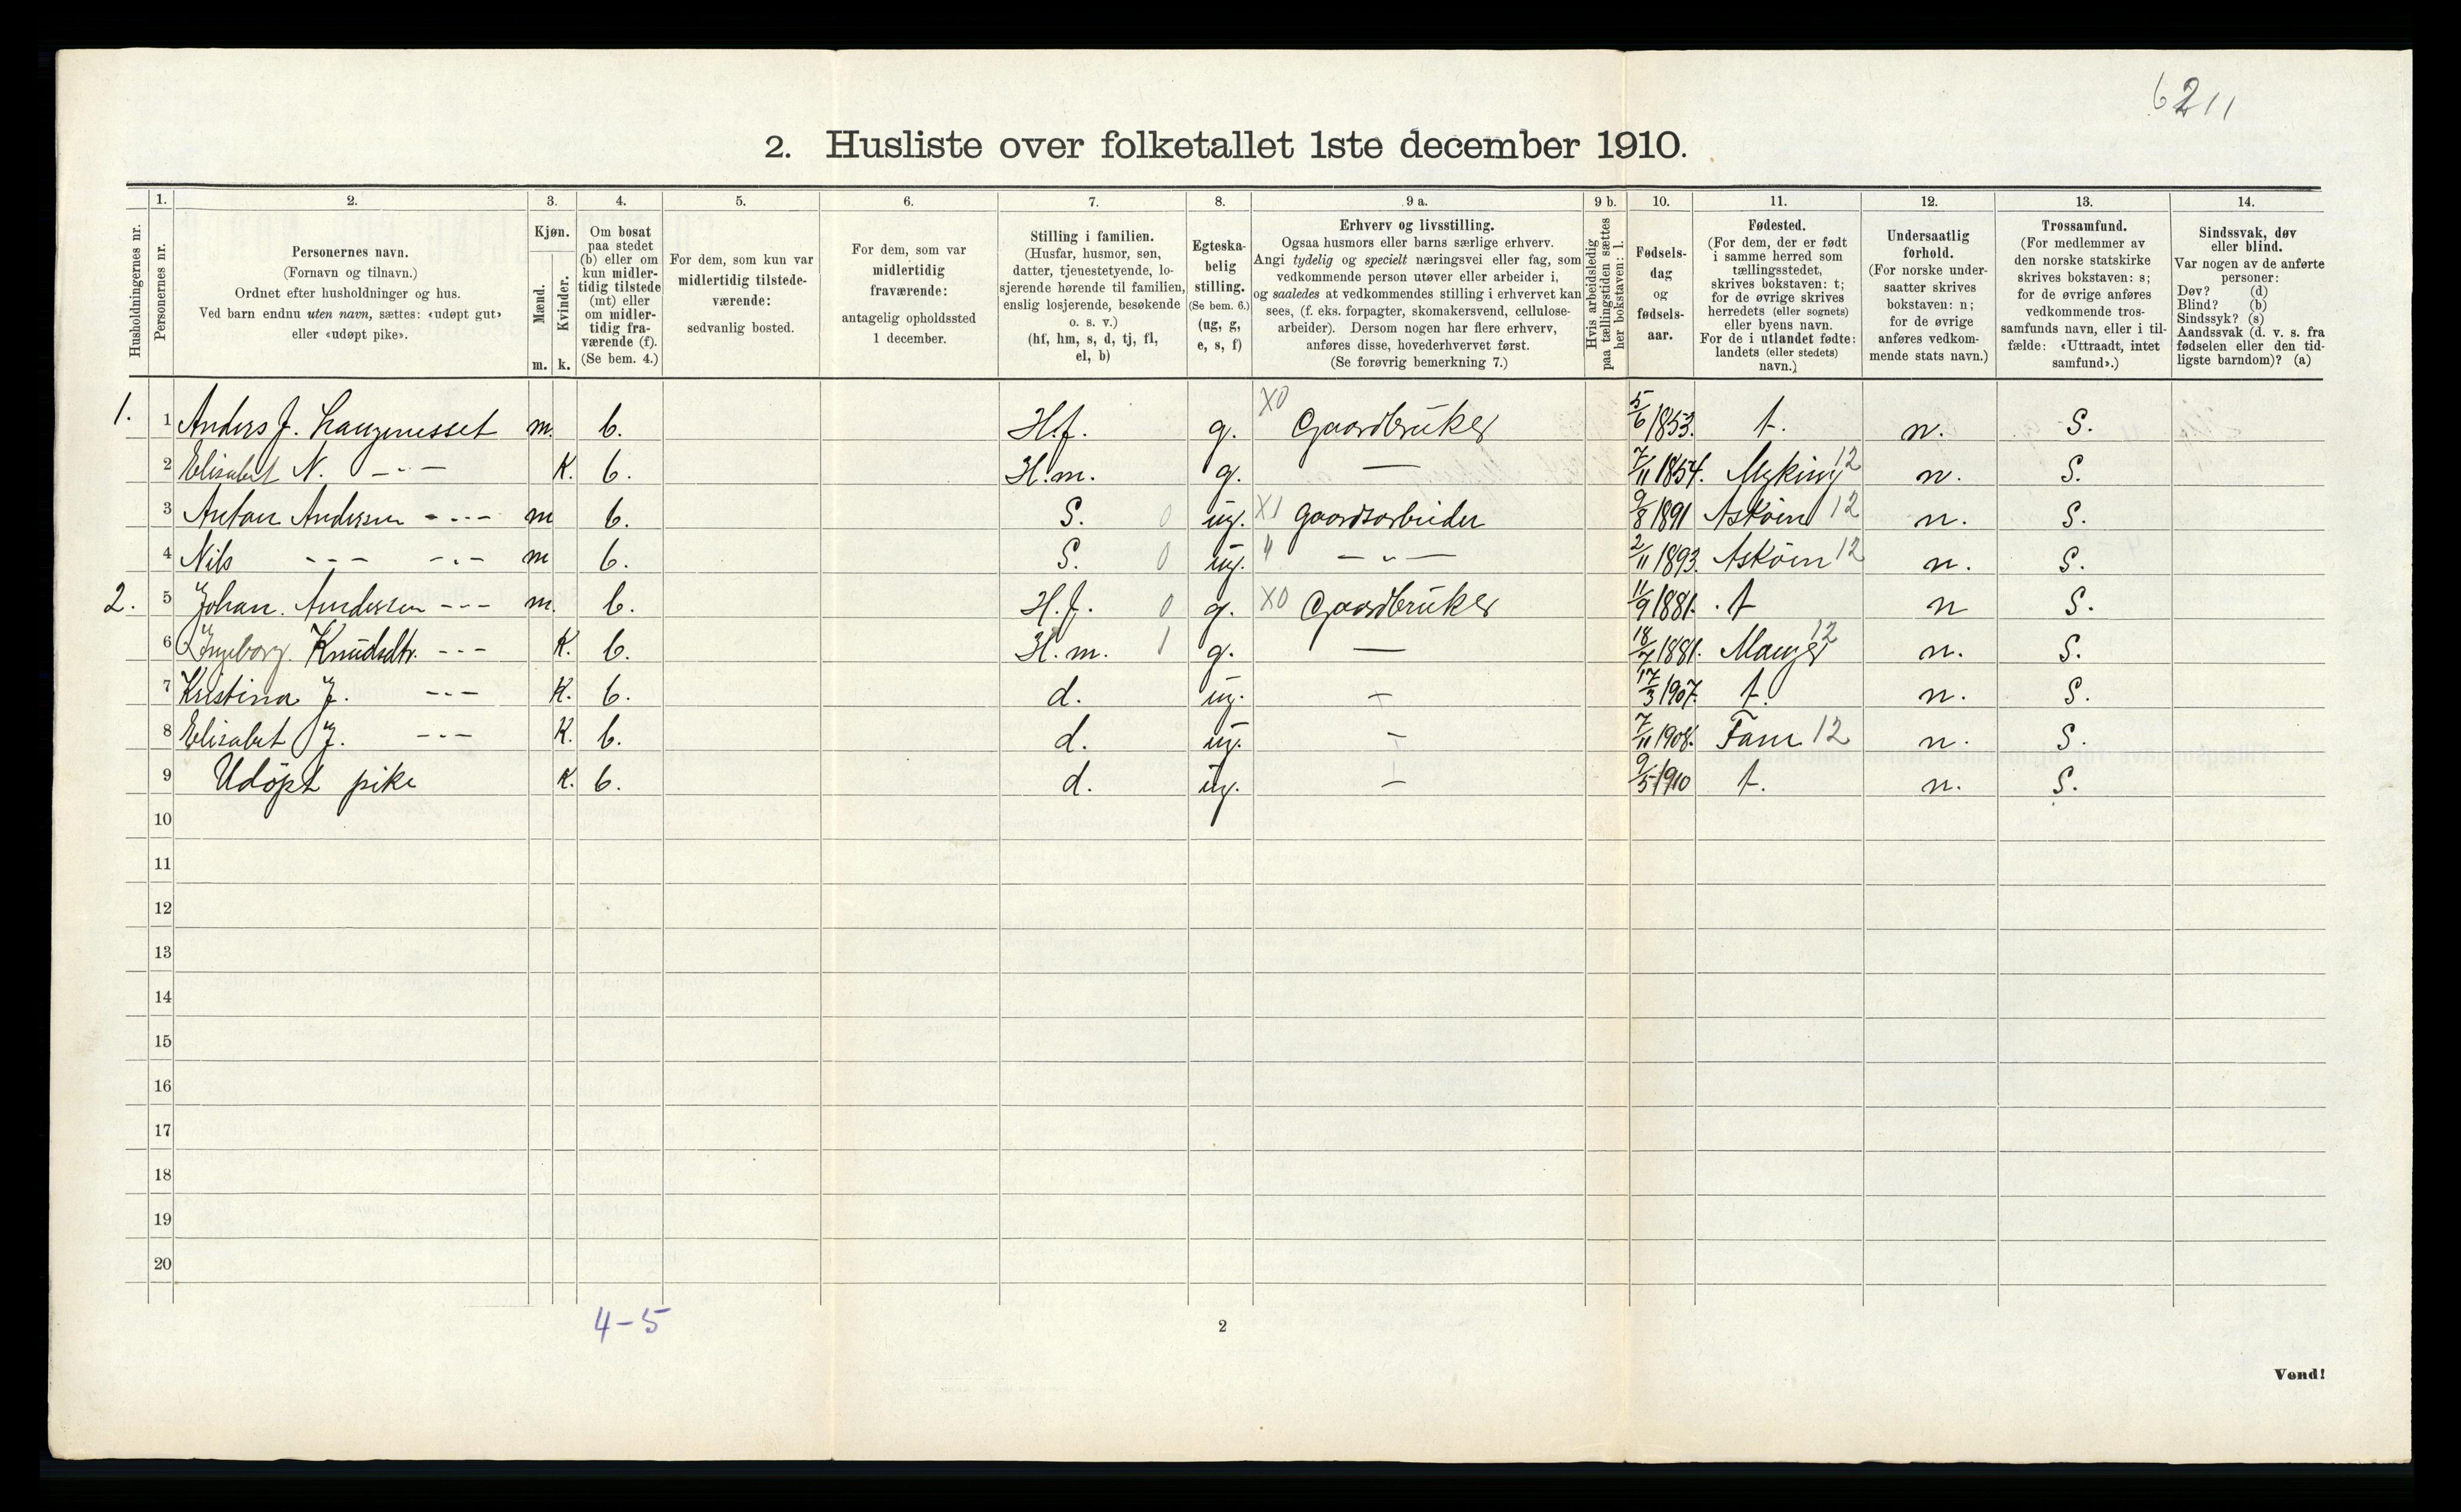 6211
2. Husliste over folketallet 1ste december 1910.
Husholdningernes nr.
1.
Personernes nr.
2.
Personernes navn.
(Fornavn og tilnavn.)
Ordnet efter husholdninger og hus.
Ved barn endnu uten navn, sættes: «udøpt gut»
eller «udøpt pike».
3.
Kjøn.
Mænd. Kvinder.
m. k.
4.
Om bosat
paa stedet
(b) eller om
kun midler-
tidig tilstede
(mt) eller
om midler-
tidig fra-
værende (f).
(Se bem. 4.)
5.
For dem, som kun var
midlertidig tilstede-
værende:
sedvanlig bosted.
6.
For dem, som var
midlertidig
fraværende:
antagelig opholdssted
1 december.
7.
Stilling i familien.
(Husfar, husmor, søn,
datter, tjenestetyende, lo-
sjerende hørende til familien,
enslig losjerende, besøkende
o. s. v.)
(hf, hm, s, d, tj, fl,
el, b)
8.
Egteska-
belig
stilling.
(Se bem. 6.)
(ug, g,
e, s, f)
9 a.
Erhverv og livsstilling.
Ogsaa husmors eller barns særlige erhverv.
Angi tydelig og specielt næringsvei eller fag, som
vedkommende person utøver eller arbeider i,
og saaledes at vedkommendes stilling i erhvervet kan
sees, (f. eks. forpagter, skomakersvend, cellulose-
arbeider). Dersom nogen har flere erhverv,
anføres disse, hovederhvervet først.
(Se forøvrig bemerkning 7.)
9 b.
Hvis arbeidsledig
paa tællingstiden sættes
her bokstaven: l.
10.
Fødsels-
dag
og
fødsels-
aar.
11.
Fødested.
(For dem, der er født
i samme herred som
tællingsstedet,
skrives bokstaven: t;
for de øvrige skrives
herredets (eller sognets)
eller byens navn.
For de i utlandet fødte:
landets (eller stedets)
navn.)
12.
Undersaatlig
forhold.
(For norske under-
saatter skrives
bokstaven: n;
for de øvrige
anføres vedkom-
mende stats navn.)
13.
Trossamfund.
(For medlemmer av
den norske statskirke
skrives bokstaven: s;
for de øvrige anføres
vedkommende tros-
samfunds navn, eller i til-
fælde: «Uttraadt, intet
samfund».)
14.
Sindssvak, døv
eller blind.
Var nogen av de anførte
personer:
Døv? (d)
Blind? (b)
Sindssyk? (s)
Aandssvak (d. v. s. fra
fødselen eller den tid-
ligste barndom)? (a)
1. 1 Anders J. Langenesset m. b. H.f. g. X0 Gaardbruker 5/6 1853. t. n. S.
2 Elisabet N. -"- K. b. H.m. g. — 7/11 1854. Myking 12 n. S.
3 Anton Andersen -"- m b. S. 0 ug. X1 gaardsarbeider 9/8 1891 Askøen 12 n. S.
4 Nils -"- -"- m b. S. 0 ug. " -"- 2/11 1893. Askøen 12 n. S.
2. 5 Johan. Andersen --- m. b. H.f. 0 g. X0 Gaardbruker 11/9 1881. t n S.
6 Ingeborg. Knudsdtr. --- K. b. H.m. 1 g. — 18/7 1881. Manger 12 n. S.
7 Kristina J. --- K. b. d. ug. — 17/3 1907. t. n. S.
8 Elisabet J. --- K. b. d. ug. — 7/11 1908. Fane 12 n. S.
9 Udøpt pike K. b. d. ug. — 9/5 1910 t. n. S.
10
11
12
13
14
15
16
17
18
19
20
4-5
2
Vend!